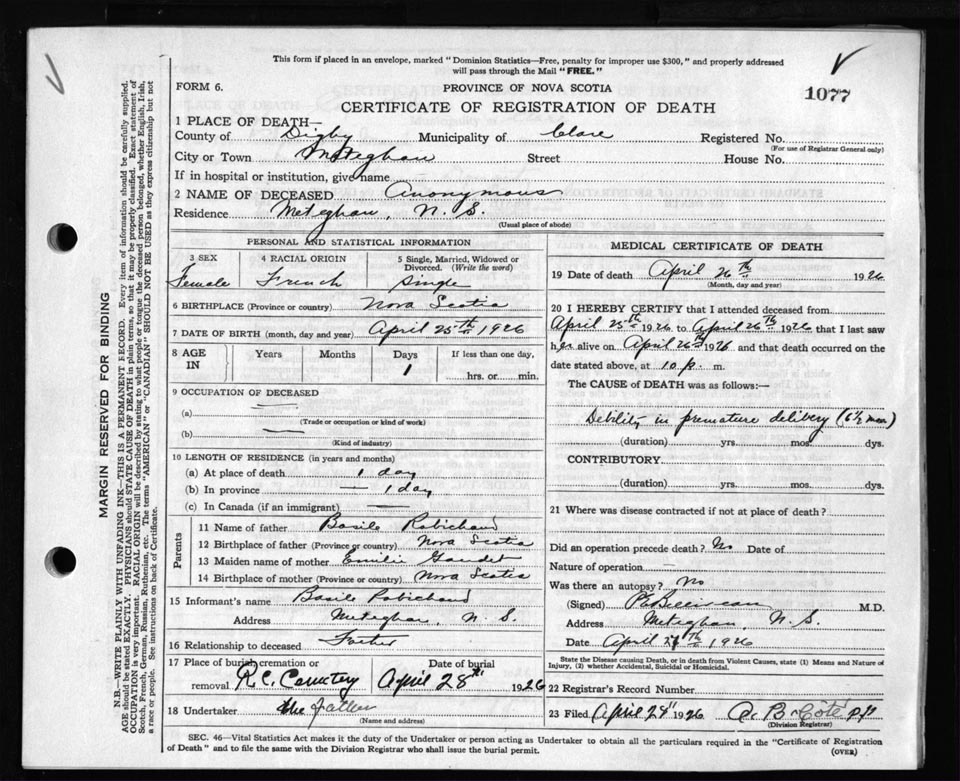 This form if placed in an envelope, marked "Dominion Statistics—Free, penalty for improper use $300," and properly addressed
will pass through the Mail "FREE."
FORM 6.
PROVINCE OF NOVA SCOTIA
1077
CERTIFICATE OF REGISTRATION OF DEATH
1 PLACE OF DEATH—
County of Digby Municipality of Clare Registered No.
(For use of Registrar General only)
City or Town Meteghan Street House No.
If in hospital or institution, give name
2 NAME OF DECEASED Anonymous
Residence Meteghan, N. S.
(Usual place of abode)
PERSONAL AND STATISTICAL INFORMATION
3 SEX 4 RACIAL ORIGIN 5 Single, Married, Widowed or Divorced. (Write the word)
Female French Single
6 BIRTHPLACE (Province or country) Nova Scotia
7 DATE OF BIRTH (month, day and year) April 25th 1926
8 AGE IN Years Months Days If less than one day,
1 hrs. or min.
9 OCCUPATION OF DECEASED
(a)
(Trade or occupation or kind of work)
(b)
(Kind of industry)
10 LENGTH OF RESIDENCE (in years and months)
(a) At place of death 1 day
(b) In province — 1 day
(c) In Canada (if an immigrant) —
Parents
11 Name of father Basile Robichaud
12 Birthplace of father (Province or country) Nova Scotia
13 Maiden name of mother Emilie Gaudet
14 Birthplace of mother (Province or country) Nova Scotia
15 Informant's name Basile Robichaud
Address Meteghan, N. S.
16 Relationship to deceased Father
17 Place of burial cremation or removal R.C. Cemetery
Date of burial April 28th 1926
18 Undertaker the father
(Name and address)
MEDICAL CERTIFICATE OF DEATH
19 Date of death April 26th 1926
(Month, day and year)
20 I HEREBY CERTIFY that I attended deceased from
April 25th 1926 to April 26th 1926 that I last saw
her alive on April 26th 1926 and that death occurred on
date stated above, at 10 p. m.
The CAUSE of DEATH was as follows:—
Debility in premature delivery (6½ mon)
(duration) yrs. mos. dys.
CONTRIBUTORY
(duration) yrs. mos. dys.
21 Where was disease contracted if not at place of death?
Did an operation precede death? No Date of
Nature of operation —
Was there an autopsy? No
(Signed) M.D.
Address Meteghan, N. S.
Date April 1926
State the Disease causing Death, or in death from Violent Causes, state (1) Means and Nature of
Injury, (2) whether Accidental, Suicidal or Homicidal.
22 Registrar's Record Number
23 Filed April 1926
(Division Registrar)
SEC. 46—Vital Statistics Act makes it the duty of the Undertaker or person acting as Undertaker to obtain all the particulars required in the "Certificate of Registration
of Death" and to file the same with the Division Registrar who shall issue the burial permit.
(OVER)
MARGIN RESERVED FOR BINDING
N.B.—WRITE PLAINLY WITH UNFADING INK—THIS IS A PERMANENT RECORD. Every item of information should be carefully supplied.
AGE should be stated EXACTLY. PHYSICIANS should STATE CAUSE OF DEATH in plain terms, so that it may be properly classified. Exact statement of
OCCUPATION is very important. RACIAL ORIGIN will be described by stating to what people or tongue the deceased person belonged, whether English, Irish,
Scotch, French, German, Russian, Ruthenian, etc. The terms "AMERICAN" or "CANADIAN" SHOULD NOT BE USED as they express citizenship but not
a race or people. See instructions on back of Certificate.